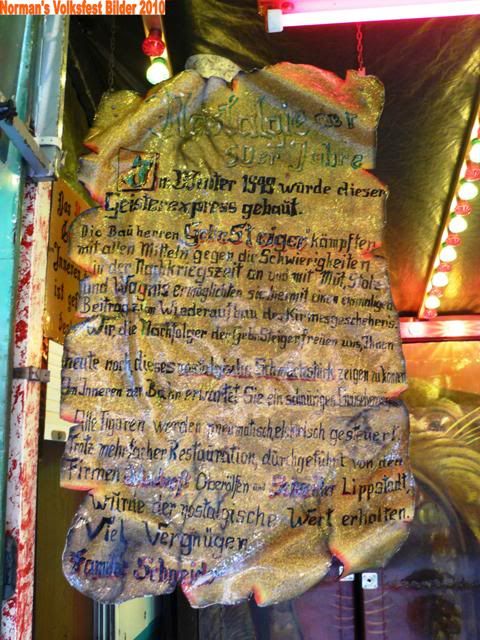 Norman's Volksfest Bilder 2010
Nostalgie der
50er Jahre
Im Winter 1949 wurde dieser
Geisterexpress gebaut.
Die Bauherren Gebr. Steiger kämpften
mit allen Mitteln gegen die Schwierigkeiten
in der Nachkriegszeit an und mit Mut, Stolz
und Wagnis ermöglichten sie hiermit einen einmaligen
Beitrag zum Wiederaufbau des Kirmesgeschehens.
Wir die Nachfolger der Gebr. Steiger freuen uns, Ihnen
heute noch dieses nostalgische Schmuckstück zeigen zu können
Im Inneren der Bahn erwartet Sie ein schauriges
Alle Figuren werden pneumatisch elektrisch gesteuert.
Trotz mehrfacher Restauration, durchgeführt von den
Firmen Oberölfen und Lippstadt,
wurde der nostalgische Wert erhalten.
Viel Vergnügen
Familie Schneider